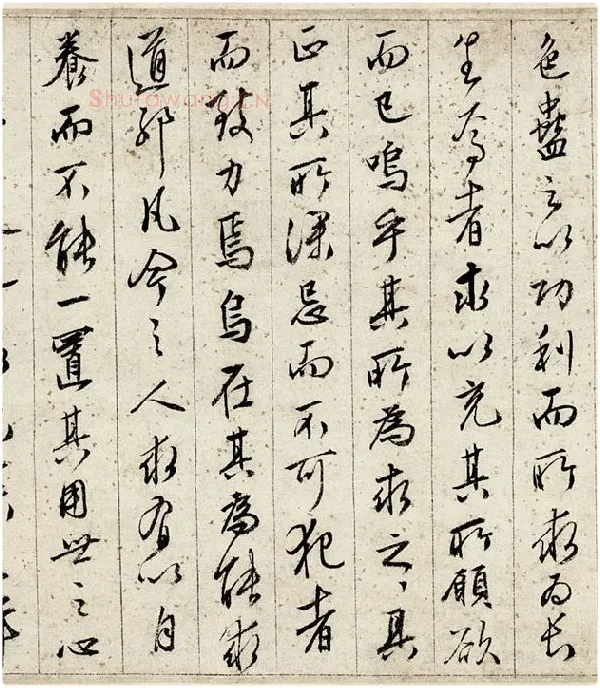 色蠱之以功利而所求為長
生為者求以充其所願欲
而已嗚乎其所為求之〻具
正其所深忌而不可犯者
而致力焉烏在其為能求
道邪凡今之人求有以自
養而不能一置其用世之心
Shufawang.CN